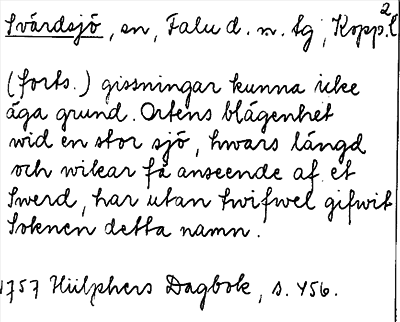 Svärdsjö, sn, Falu d. n. tg, Kopp. l
2
(forts.) gissningar kunna icke
äga grund. Ortens belägenhet
wid en stor sjö, hwars längd
och wikar få anseende af et
Swerd, har utan twifwel gifwit
Soknen detta namn.
1757 Hülphers Dagbok, s. 456.